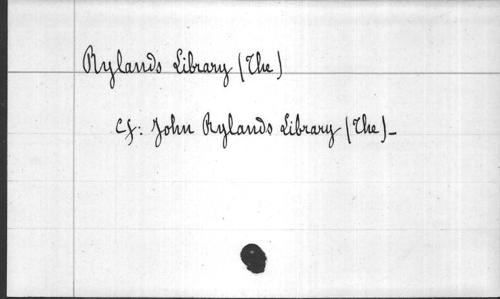 Rylands Library (The)
Cf: John Rylands Library (The)_